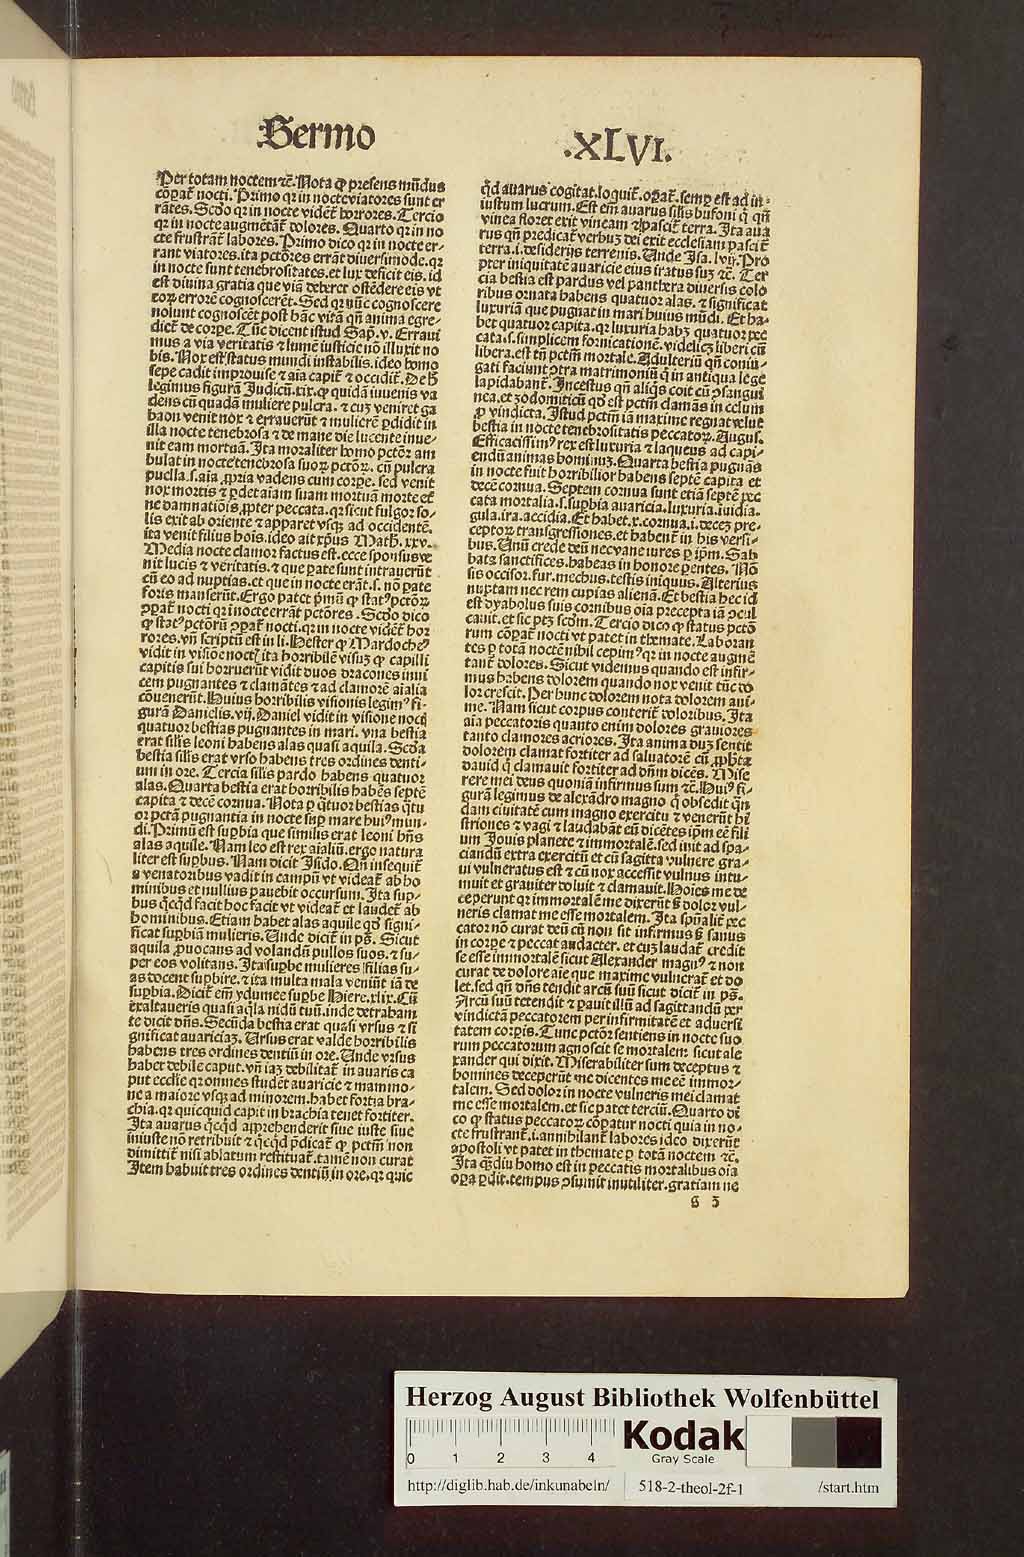 Sermo
.XLVI.
Per totam noctem ⁊c̄. Nota ꝙ presens mūdus
cōꝑat̄ nocti. Primo qꝛ in nocte viatores sunt er
rātes. Scd̄o qꝛ in nocte vidēt̄ horrores. Tercio
qꝛ in nocte augmētāt̄ dolores. Quarto qꝛ in no
cte frustrāt̄ labores. Primo dico qꝛ in nocte er-
rant viatores. ita pctōres errāt diuersimode. qꝛ
in nocte sunt tenebrositates. et lux deficit eis. id
est diuina gratia que viā deberet ostēdere eis vt
eoꝝ errorē cognoscerēt. Sed qꝛ nūc cognoscere
nolunt cognoscēt post hāc vitā qn̄ anima egre-
diet̄ de corpe. Tūc dicent istud Sap̄. v. Erraui
mus a via veritatis ⁊ lumē iusticie nō illuxit no
bis. Nox est status mundi instabilis. ideo homo
sepe cadit improuise ⁊ aīa capit̄ ⁊ occidit̄. De h̄
legimus figurā Judicū. xix. ꝙ quidā iuuenis va
dens cū quadā muliere pulcra. ⁊ cuʒ veniret ga
baon venit nox ⁊ errauerūt ⁊ mulierē ꝑdidit in
illa nocte tenebrosa ⁊ de mane die lucente inue-
nit eam mortuā. Ita moraliter homo pctōr am
bulat in nocte tenebrosa suoꝝ pctōꝝ. cū pulcra
puella. s. aīa ꝓpria vadens cum corpe. sed venit
nox mortis ⁊ ꝑdet aīam suam mortuā morte et̄
ne damnatiōis ꝓpter peccata. qꝛ sicut fulgor so-
lis exit ab oriente ⁊ apparet vsqꝫ ad occidentē.
ita venit filius hoīs. ideo ait xp̄us Math. xxv.
Media nocte clamor factus est. ecce sponsus ve
nit lucis ⁊ veritatis. ⁊ que ꝑate sunt intrauerūt
cū eo ad nuptias. et que in nocte erāt. s. nō ꝑate
foris manserūt. Ergo patet pͥmū ꝙ statꝰ pctōꝝ
ꝯꝑat̄ nocti qꝛ ī nocte errāt pctōres. Scd̄o dico
ꝙ statꝰ pctōrū ꝯꝑat̄ nocti. qꝛ in nocte vidēt̄ hor
rores. vn̄ scriptū est in li. Hester ꝙ Mardocheꝰ
vidit in visiōe noctꝭ ita horribilē visuʒ ꝙ capilli
capitis sui horruerūt vidit duos dracones inui
cem pugnantes ⁊ clamātes ⁊ ad clamorē aīalia
cōuenerūt. Huius horribilis visionis legimꝰ fi-
gurā Danielis. vij. Daniel vidit in visione nocꝭ
quatuor bestias pugnantes in mari. vna bestia
erat sil̄is leoni habens alas quasi aquila. Scd̄a
bestia sil̄is erat vrso habens tres ordines denti-
um in ore. Tercia sil̄is pardo habens quatuor
alas. Quarta bestia erat horribilis habēs septē
capita ⁊ decē cornua. Nota ꝑ qͣtuor bestias qͣtu
or pctā pugnantia in nocte sup̄ mare huiꝰ mun-
di. Primū est sup̄bia que similis erat leoni hn̄s
alas aquile. Nam leo est rex aīaliū. ergo natura
liter est sup̄bus. Nam dicit Jsido. Qn̄ insequit̄
a venatoribus vadit in campū vt videat̄ ab ho
minibus et nullius pauebit occursum. Ita sup-
bus qͥcqͥd facit hoc facit vt videat̄ et laudet̄ ab
hominibus. Etiam habet alas aquile qd̄ signi-
ficat sup̄biā mulieris. Unde dicit̄ in ps̄. Sicut
aquila ꝓuocans ad volandū pullos suos. ⁊ su-
per eos volitans. Ita sup̄be mulieres filias su-
as docent sup̄bire. ⁊ ita multa mala veniūt iā de
sup̄bia. Dicit̄ em̄ ydumee sup̄be Hiere. xlix. Cū
exaltaueris quasi aqͥla nidū tuū. inde detraham
te dicit dn̄s. Secūda bestia erat quasi vrsus ⁊ si
gnificat auariciaʒ. Ursus erat valde horribilis
habens tres ordines dentiū in ore. Unde vrsus
habet debile caput. vn̄ iaʒ debilitat̄ in auaris ca
put ecclīe qꝛ omnes studēt auaricie ⁊ mammo-
ne a maiore vsqꝫ ad minorem. habet fortia bra-
chia. qꝛ quicquid capit in brachia tenet fortiter.
Ita auarus qͥcqͥd apprehenderit siue iuste siue
iniuste nō retribuit ⁊ qͥcqͥd p̄dicat̄ ꝙ pctm̄ non
dimittit̄ nisi ablatum restituat̄. tamē non curat
Item habuit tres ordines dentiū in ore. qꝛ quic
qͥd auarus cogitat. loquit̄. oꝑat̄. semꝑ est ad in-
iustum lucrum. Est em̄ auarus sil̄is bufoni qͥ qn̄
vinea floret exit vineam ⁊ pascit̄ terra. Ita aua
rus qn̄ predicat̄ verbuʒ dei exit ecclesiam pascit̄
terra. i. desiderijs terrenis. Unde Jsa. lvij. Pro
pter iniquitatē auaricie eius iratus suʒ ⁊c̄. Ter
cia bestia est pardus vel panthera diuersis colo
ribus ornata habens quatuor alas. ⁊ significat
luxuriā que pugnat in mari huius mūdi. Et ha-
bet quatuor capita. qꝛ luxuria habʒ quatuor pec
cata. s. simplicem fornicationē. videlicʒ liberi cū
libera. est tn̄ pctm̄ mortale. Adulteriū qn̄ coniu-
gati faciunt ꝯtra matrimoniū qͥ in antiqua lege
lapidabant̄. Incestus qn̄ aliqͥs coit cū ꝯsangui
nea. et zodomiticū qd̄ est pctm̄ clamās in celum
ꝓ vindicta. Istud pctm̄ iā maxime regnat velut
bestia in nocte tenebrositatis peccatoꝝ. Augus.
Efficacissimꝰ rex est luxuria ⁊ laqueus ad capi-
endū animas hominuʒ. Quarta bestia pugnās
in nocte fuit horribilior habens septē capita et
decē cornua. Septem cornua sunt etiā septē pec
cata mortalia. s. sup̄bia auaricia. luxuria. inuidia.
gula. ira. accidia. Et habet. x. cornua. i. decez pre-
ceptoꝝ transgressiones. et habent̄ in his versi-
bus. Unū crede deū nec vane iures ꝑ ip̄m. Sab
bata sanctifices. habeas in honore parentes. Nō
sis occisor. fur. mechus. testis iniquus. Alterius
nuptam nec rem cupias alienā. Et bestia hec id
est dyabolus suis cornibus oīa precepta iā ꝯcul
cauit. et sic ptʒ scdm̄. Tercio dico ꝙ status pctō
rum cōꝑat̄ nocti vt patet in themate. Laboran
tes ꝑ totā noctē nihil cepimꝰ qꝛ in nocte augmē
tant̄ dolores. Sicut videmus quando est infir-
mus habens dolorem quando nox venit tūc do
lor crescit. Per hunc dolorem nota dolorem ani-
me. Nam sicut corpus conterit̄ doloribus. Ita
aīa peccatoris quanto enim dolores grauiores
tanto clamores acriores. Ita anima duʒ sentit
dolorem clamat fortiter ad saluatorē cū ꝓph̄eta
dauid qͥ clamauit fortiter ad dn̄m dicēs. Mise
rere mei deus quoniā infirmus sum ⁊c̄. Huiꝰ fi-
gurā legimus de alexādro magno qͥ obsedit qn̄
dam ciuitatē cum magno exercitu ⁊ venerūt hi
striones ⁊ vagi ⁊ laudabāt eū dicētes ip̄m eē fili
um Jouis planete ⁊ immortalē. sed iuit ad spa-
ciandū extra exercitū et cū sagitta vulnere gra-
ui vulneratus est ⁊ cū nox accessit vulnus intu-
muit et grauiter doluit ⁊ clamauit. Hoīes me de
ceperunt qꝛ immortalē me dixerūt sꝫ dolor vul-
neris clamat me esse mortalem. Ita spūalit̄ pec
cator nō curat deū cū non sit infirmus sꝫ sanus
in corpe ⁊ peccat audacter. et cuʒ laudat̄ credit
se esse immortalē sicut Alexander magnꝰ ⁊ non
curat de dolore aīe que maxime vulnerat̄ et do
let. sed qn̄ dn̄s tendit arcū suū sicut dicit̄ in ps̄.
Arcū suū tetendit ⁊ ꝑauit illū ad sagittandū per
vindictā peccatorem per infirmitatē et aduersi
tatem corpis. Tunc pctōr sentiens in nocte suo
rum peccatorum agnoscit se mortalem sicut ale
xander qui dixit. Miserabiliter sum deceptus ⁊
homines deceperūt me dicentes me eē immor-
talem. Sed dolor in nocte vulneris mei clamat
me esse mortalem. et sic patet terciū. Quarto di
co ꝙ status peccatoꝝ cōpatur nocti quia in no-
cte frustrant̄. i. annihilant̄ labores ideo dixerūt
apostoli vt patet in themate ꝑ totā noctem ⁊c̄.
Ita qͣdiu homo est in peccatis mortalibus oīa
oꝑa ꝑdit. tempus ꝯsumit inutiliter. gratiam ne
g 3
Herzog August Bibliothek Wolfenbüttel
0 1 2 3 4
Kodak
Gray Scale
http://diglib.hab.de/inkunabeln/ 518-2-theol-2f-1 /start.htm